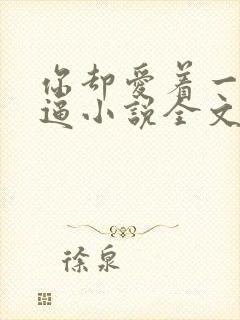 你却爱着一
逼小说全文
徐泉